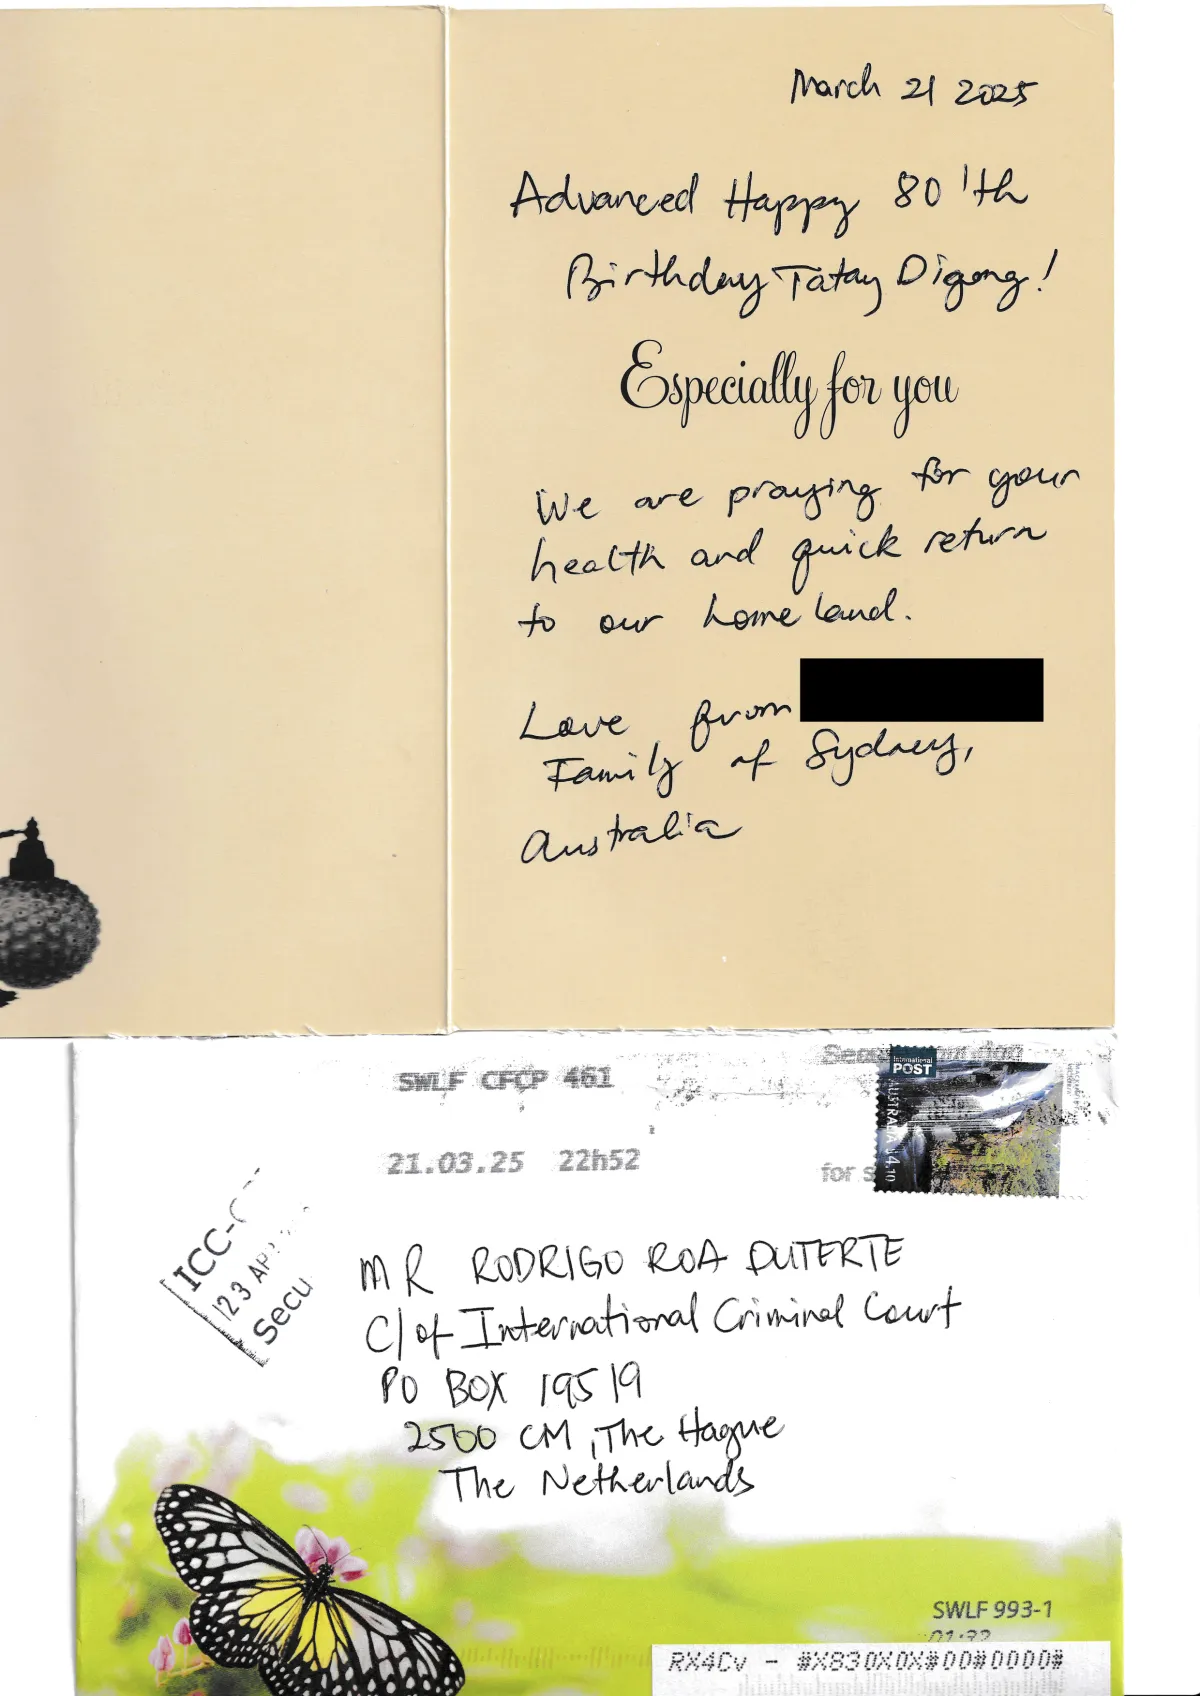 March 21 2025
Advanced Happy 80'th
Birthday Tatay Digong!
Especially for you
We are praying for your
health and quick return
to our homeland.
Love from
Family of Sydney,
Australia
SWLF CFCP 461
21.03.25 22h52
for s
International
POST
AUSTRALIA $4.10
ICC-C
23 APR
Secu
MR RODRIGO ROA DUTERTE
C/of International Criminal Court
PO BOX 19519
2500 CM, The Hague
The Netherlands
SWLF 993-1
01:32
RX4Cv - #X830X0X#00#0000#